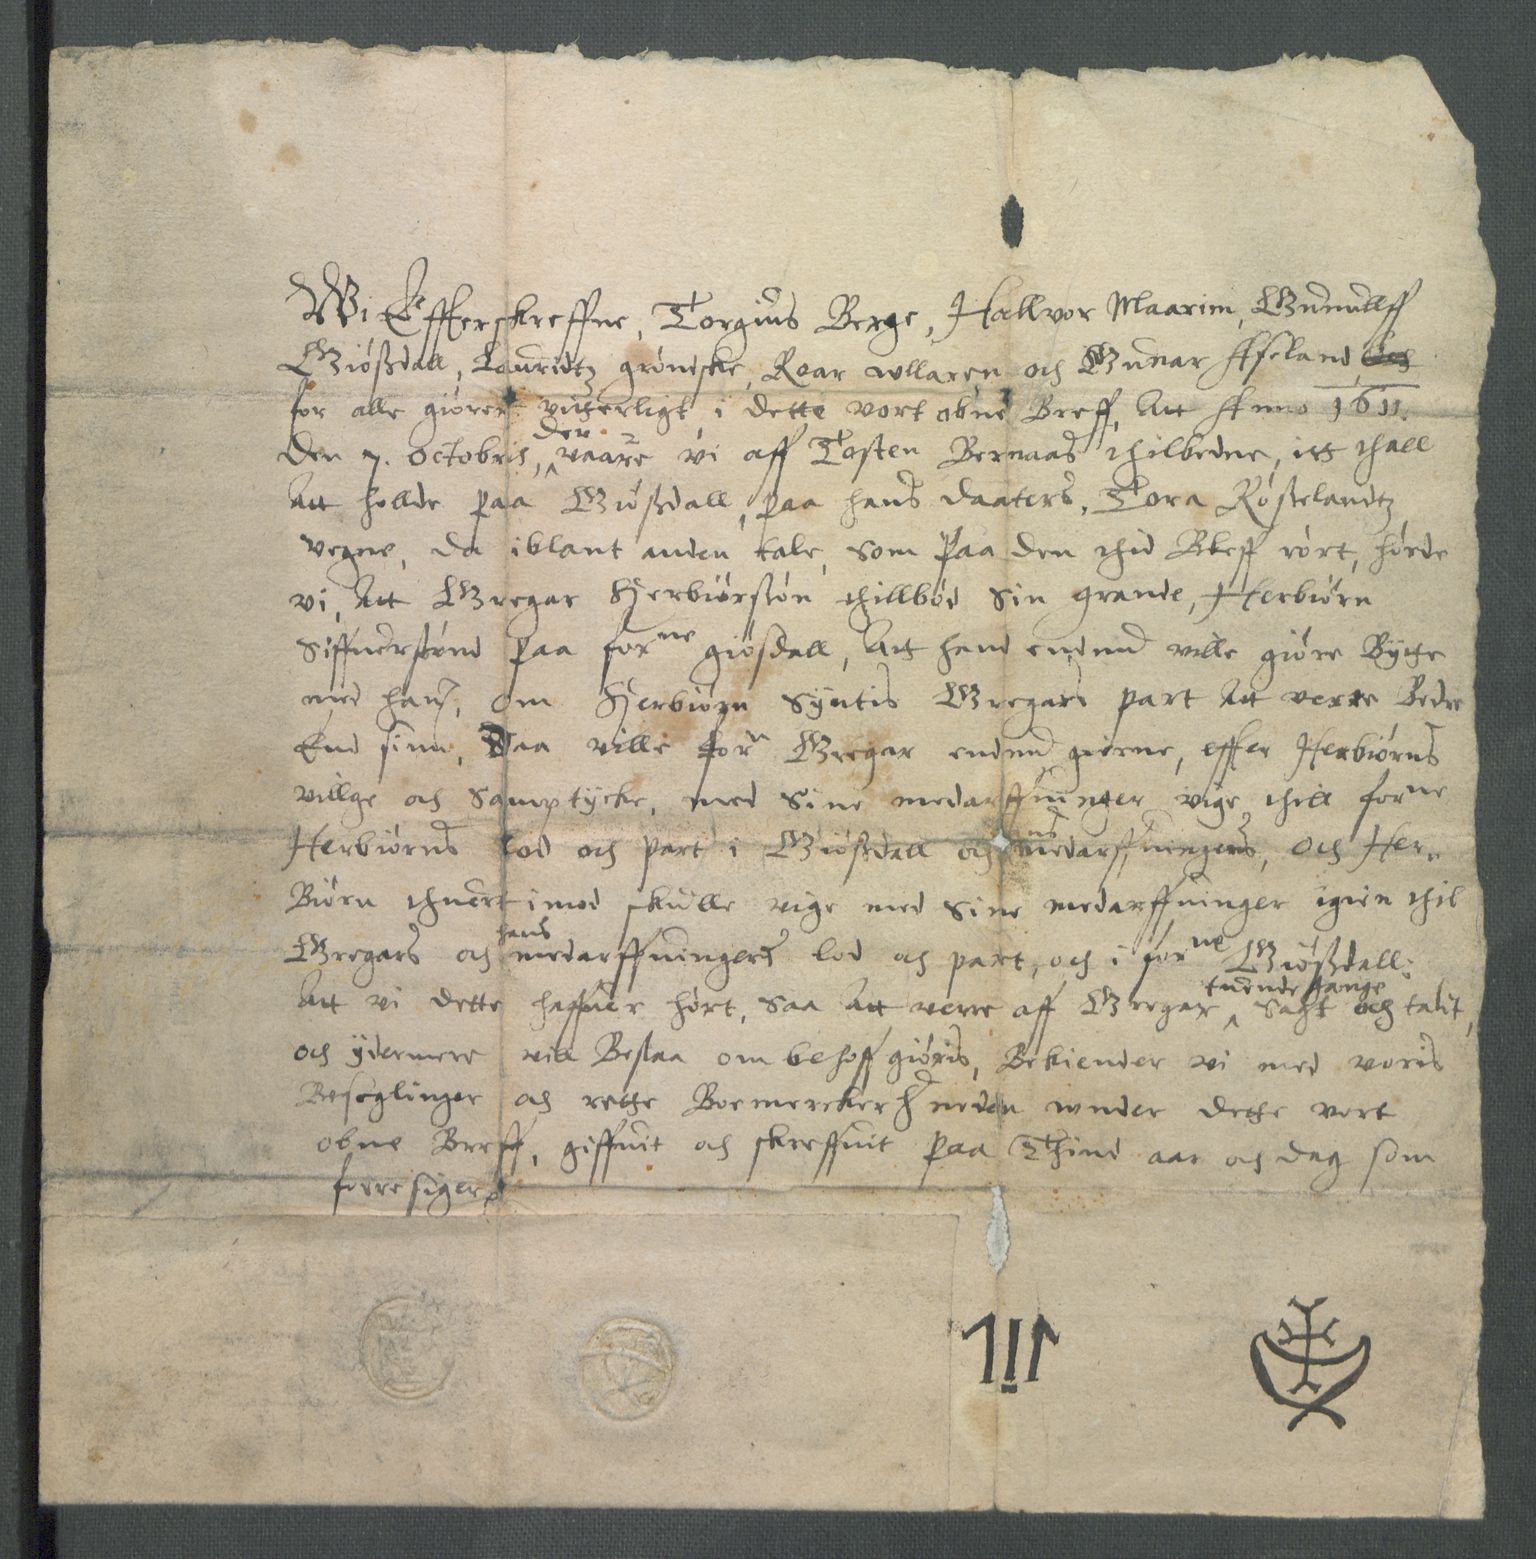 Wi Effterskreffne, Torgius Berge, Hallvor Maarim, Gunnulff
Giøßdall, Lauridtz grønske, Roar wllaren och Gunnar Asseland
for alle giører vitterligt i dette vort obne Breff, Att Anno 1611.
der
Den 7. Octobris, vaare vi aff Tosten Bernaas thilbedne, itt thall
Att hollde paa Giøßdall, paa hans daaters, Tora Røßelandtz
vegne, da iblant anden tale, som paa den thid Bleff rørt, hørde
vi, Att Gregar Herbiørssøn thillbød sin grande, Herbiørn
Siffuerssønd paa forne giøsdall, Att hand endnu ville giøre Bytte
med ham, om Herbiørn Syntis Gregars part Att verre Bedre
End sinn, Daa ville forn Gregar endnu gierne, effter Herbiørns
villge och Samptycke, med Sine medarffuinger vige thill forne
Herbiørns lod och part i Giøßdall och medarffuingers, och Her-
Biørn thuert imod skulle vige med Sine medarffuinger igien thil
hans
Gregars och medarffuingers lod och part, och i forne Giøßdall:
tuende gange
Att vi dette haffuer hørt, saa Att verre aff Gregar sagt och talit,
och ÿdermere vill Bestaa om behoff giøris, Bekiender vi med voris
Beseglinger och rette Boemercker neden wnder dette vort
obne Breff, giffuit och skreffuit paa Thind aar och dag som
forre siger